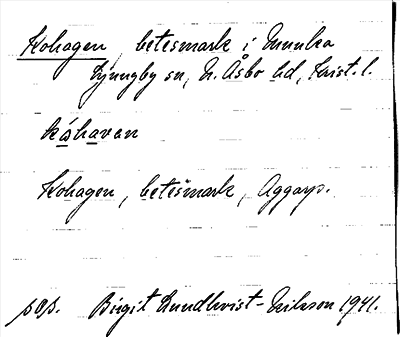 Kohagen, betesmark i Munka
Ljungby sn, N. Åsbo hd, Krist. l.
kåhavan
Kohagen, betesmark, Aggarp.
pop. Birgit Lundkvist-Eriksson 1941.